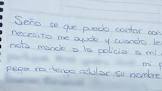 Seño se que puedo contar con
necesito me ayude y cuando le
nota mande a la policía a mi
mi
pero no tengo celular su nombre